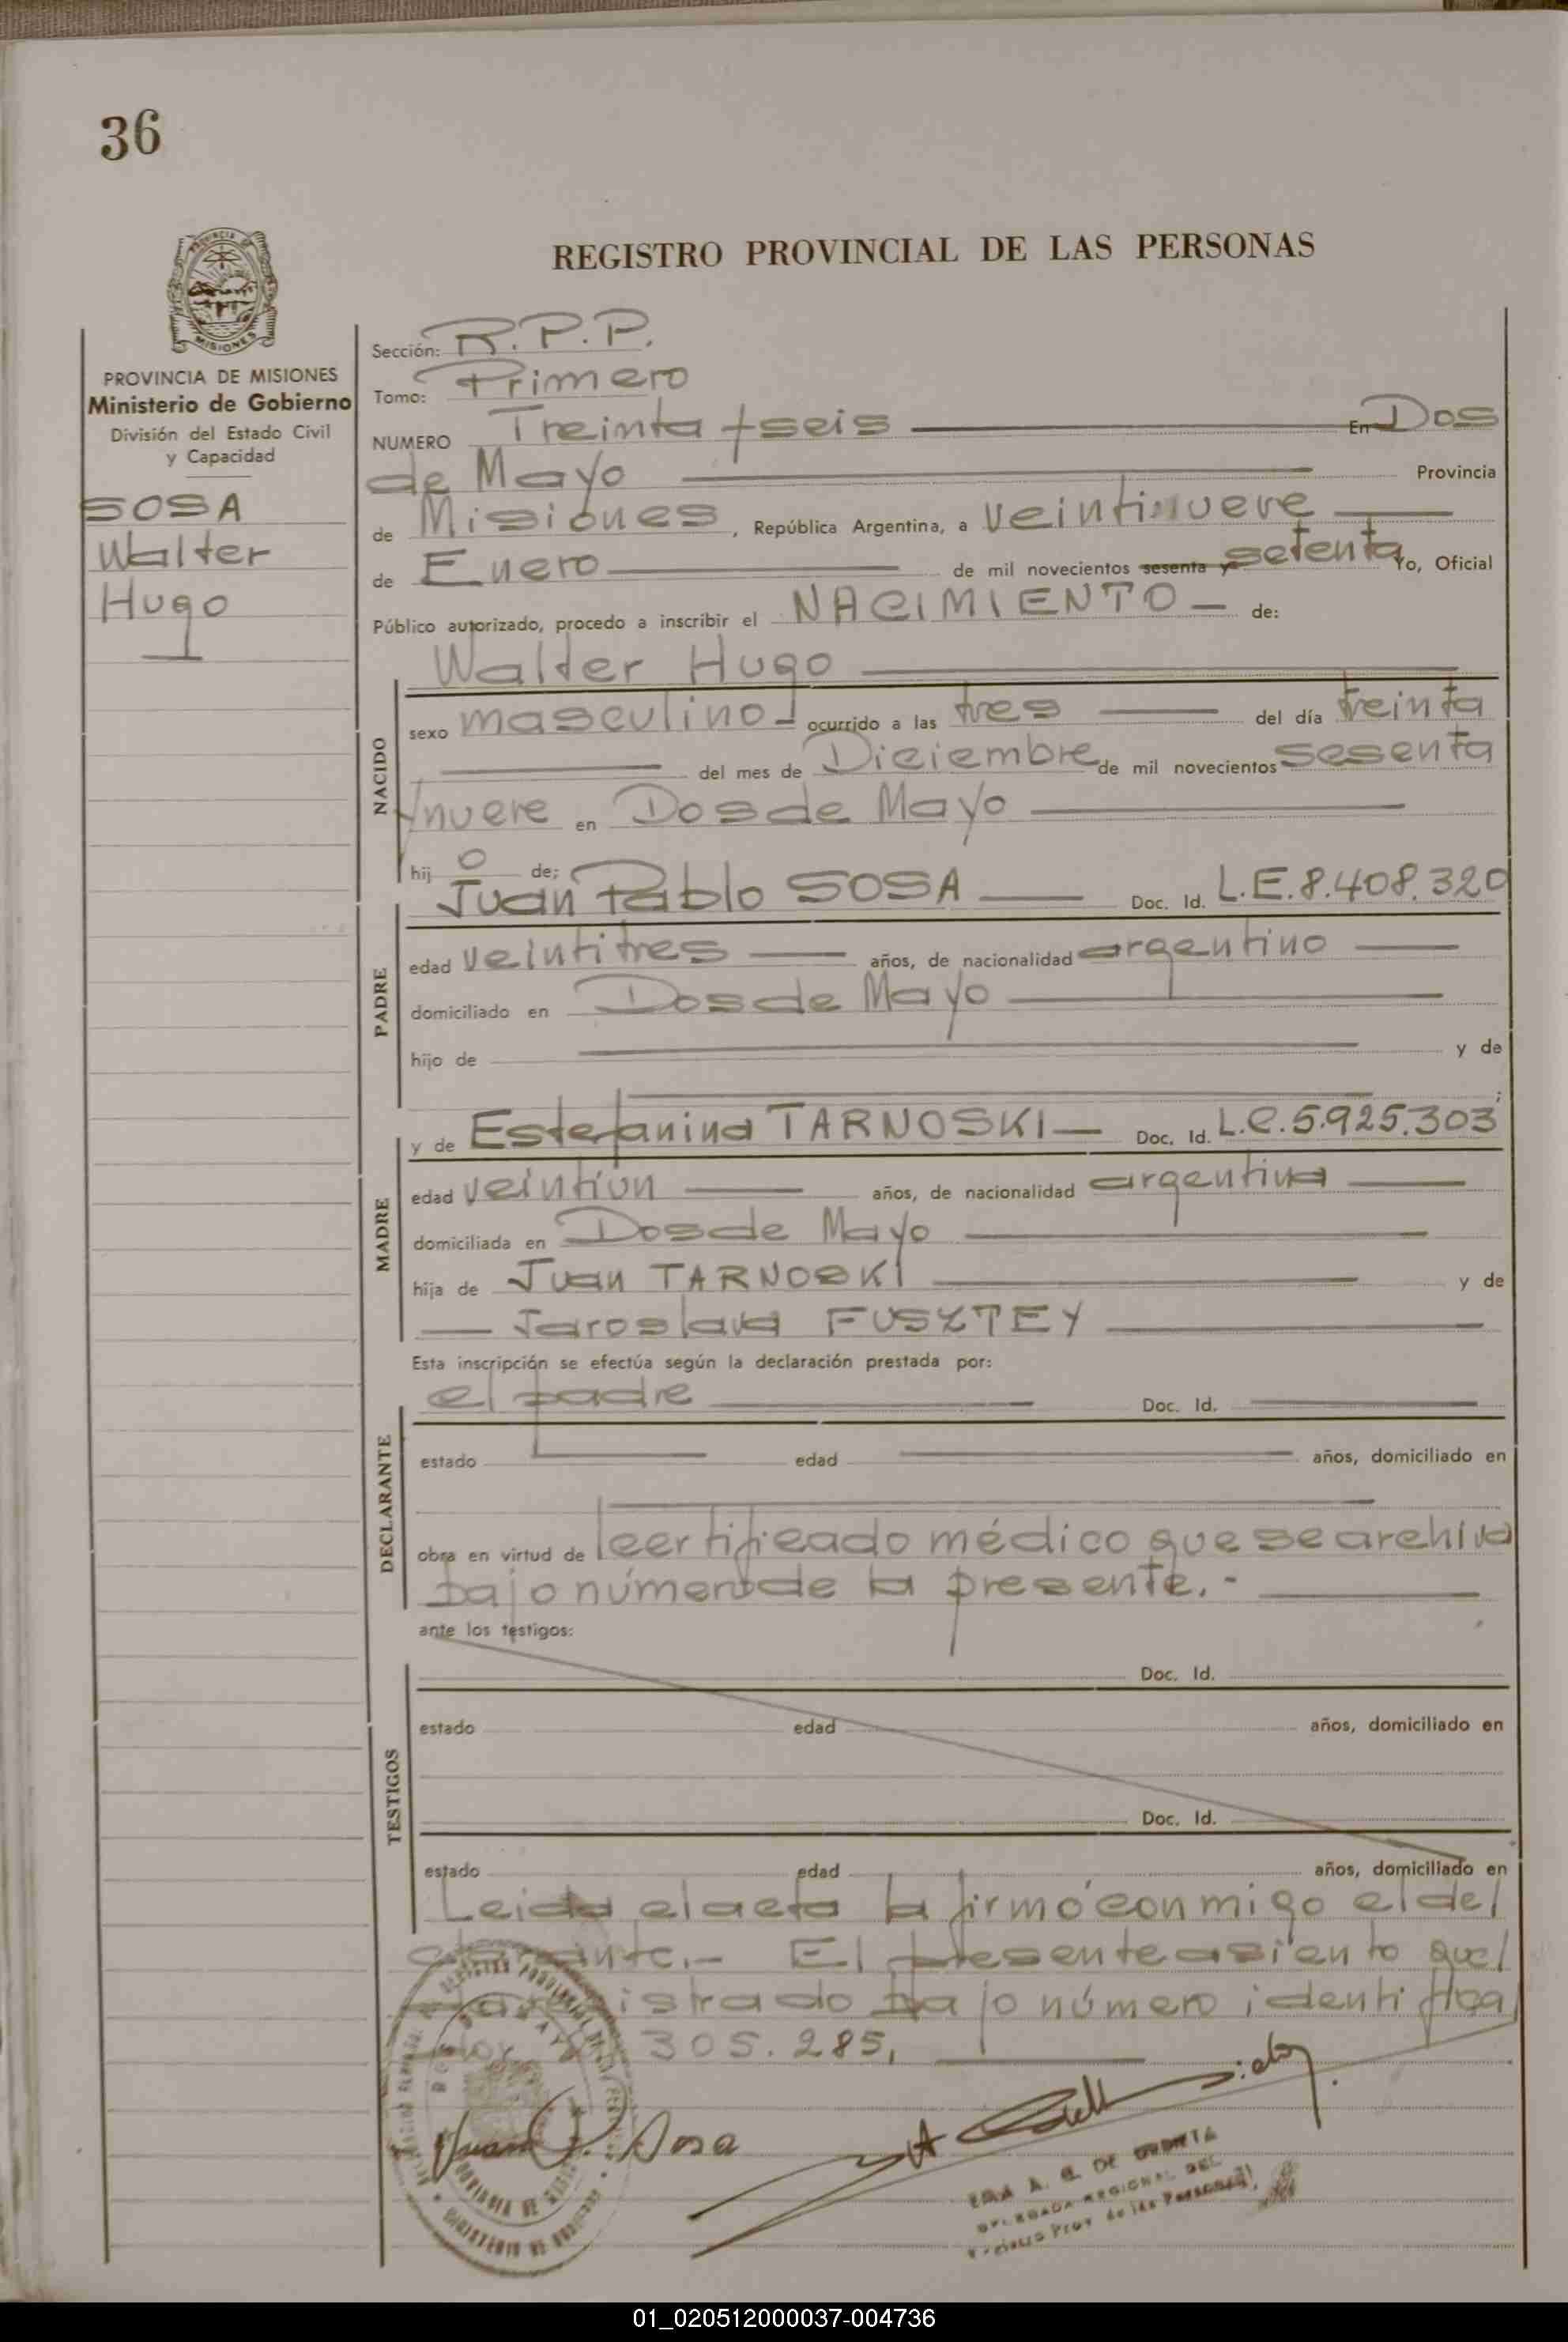 36
REGISTRO PROVINCIAL DE LAS PERSONAS
MISIONES
PROVINCIA DE MISIONES
Ministerio de Gobierno
División del Estado Civil
y Capacidad
SOSA
Walter
Hugo
Sección: R.P.P.
Tomo: Primero
NUMERO Treinta y seis En Dos
de Mayo Provincia
de Misiones, República Argentina, a veintinueve
de Enero de mil novecientos sesenta y setenta Yo, Oficial
Público autorizado, procedo a inscribir el NACIMIENTO de:
Walter Hugo
NACIDO
sexo masculino ocurrido a las tres del día treinta
del mes de Diciembre de mil novecientos sesenta
y nueve en Dos de Mayo
hijo de:
Juan Pablo SOSA Doc. Id. L.E.8.408.320
PADRE
edad veintitres años, de nacionalidad argentino
domiciliado en Dos de Mayo
hijo de y de
y de Estefanina TARNOSKI Doc. Id. L.C.5.925.303
MADRE
edad veintiun años, de nacionalidad argentina
domiciliada en Dos de Mayo
hija de Juan TARNOSKI y de
Jaroslava FUSZTEY
Esta inscripción se efectúa según la declaración prestada por:
el padre Doc. Id.
DECLARANTE
estado edad años, domiciliado en
obra en virtud de certificado médico que se archiva
bajo número de la presente.-
ante los testigos:
Doc. Id.
TESTIGOS
estado edad años, domiciliado en
Doc. Id.
estado edad años, domiciliado en
Leida el acta la firmó conmigo el del
El presente asiento que
istrado bajo número identifica
305.285,
Juan P. Sosa
A. G. DE
DELEGADA REGIONAL DEL
Prov. de las Personas
01_020512000037-004736